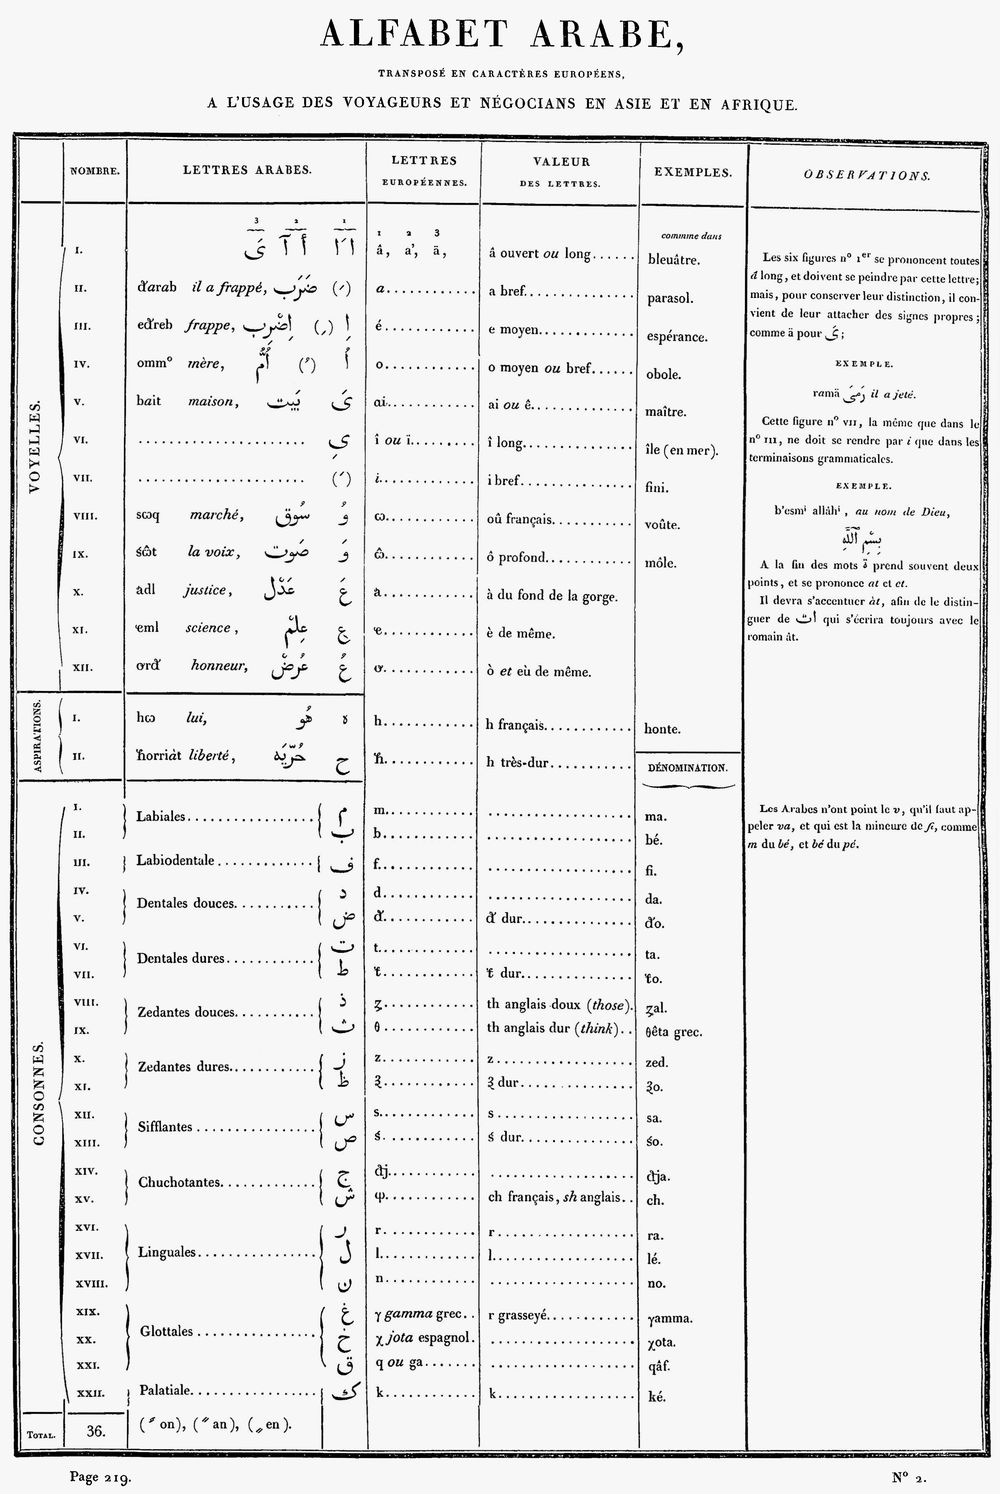 ALFABET ARABE,
TRANSPOSÉ EN CARACTÈRES EUROPÉENS,
A L'USAGE DES VOYAGEURS ET NÉGOCIANS EN ASIE ET EN AFRIQUE.
NOMBRE. LETTRES ARABES. LETTRES EUROPÉENNES. VALEUR DES LETTRES. EXEMPLES. OBSERVATIONS.
VOYELLES.
1 2 3
comme dans
I. â, a', ä, â ouvert ou long...... bleuâtre.
II. đarab il a frappé, ضَرَب (َ) a............ a bref............ parasol.
III. eđreb frappe, إِضْرِب (ِ) إِ é............ e moyen............ espérance.
IV. ommº mère, أُمُّ (ُ) أُ o............ o moyen ou bref...... obole.
V. bait maison, بَيت ىَ ai............ ai ou ê............ maître.
VI. ...................... ىِ î ou ï......... î long............ île (en mer).
VII. ...................... i............ i bref............ fini.
VIII. sɷq marché, سُوق وُ ɷ............ oû français......... voûte.
IX. śɷ̂t la voix, صَوت وَ ɷ̂............ ô profond......... môle.
X. adl justice, عَدْل عَ a............ à du fond de la gorge.
XI. eml science, عِلْم عِ e............ è de même.
XII. orđ honneur, عُرْض عُ o............ ò et eù de même.
Les six figures nº 1er se prononcent toutes
â long, et doivent se peindre par cette lettre;
mais, pour conserver leur distinction, il con-
vient de leur attacher des signes propres;
comme ä pour ىَ;
EXEMPLE.
ramä رَمَىَ il a jeté.
Cette figure nº VII, la même que dans le
nº III, ne doit se rendre par i que dans les
terminaisons grammaticales.
EXEMPLE.
b'esmi allâhi, au nom de Dieu,
بِسْمِ ٱللّٰهِ
A la fin des mots ة prend souvent deux
points, et se prononce at et et.
Il devra s'accentuer àt, afin de le distin-
guer de أت qui s'écrira toujours avec le
romain ât.
ASPIRATIONS.
I. hɷ lui, هُو ه h............ h français............ honte.
II. ħorriàt liberté, حُرّيَه ح ħ............ h très-dur............
DÉNOMINATION.
CONSONNES.
I. Labiales.................. م m............ .................. ma.
II. ب b............ .................. bé.
III. Labiodentale............ ف f............ .................. fi.
IV. Dentales douces........... د d............ .................. da.
V. ض đ............ đ dur............ đo.
VI. Dentales dures............ ت t............ .................. ta.
VII. ط ŧ............ ŧ dur............ ŧo.
VIII. Zedantes douces........... ذ ȥ............ th anglais doux (those). ȥal.
IX. ث θ............ th anglais dur (think).. θêta grec.
X. Zedantes dures............ ز z............ z............ zed.
XI. ظ ʒ............ ʒ dur............ ʒo.
XII. Sifflantes................ س s............ s............ sa.
XIII. ص ś............ ś dur............ śo.
XIV. Chuchotantes............. ج đj............ .................. đja.
XV. ش φ............ ch français, sh anglais.. ch.
XVI. Linguales................ ر r............ r............ ra.
XVII. ل l............ l............ lé.
XVIII. ن n............ .................. no.
XIX. Glottales................ غ γ gamma grec.. r grasseyé............ γamma.
XX. خ χ jota espagnol. .................. χota.
XXI. ق q ou ga....... .................. qâf.
XXII. Palatiale................ ك k............ k............ ké.
Les Arabes n'ont point le v, qu'il faut ap-
peler va, et qui est la mineure de fi, comme
m du bé, et bé du pé.
TOTAL. 36. (ٌ on), (ً an), (ٍ en).
Page 219. Nº 2.